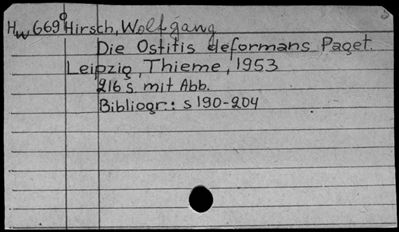 Hw 669° Hirsch, Wolfgang
Die Ostitis deformans Paget.
Leipzig, Thieme, 1953
216 s. mit Abb.
Bibliogr.: s 190-204